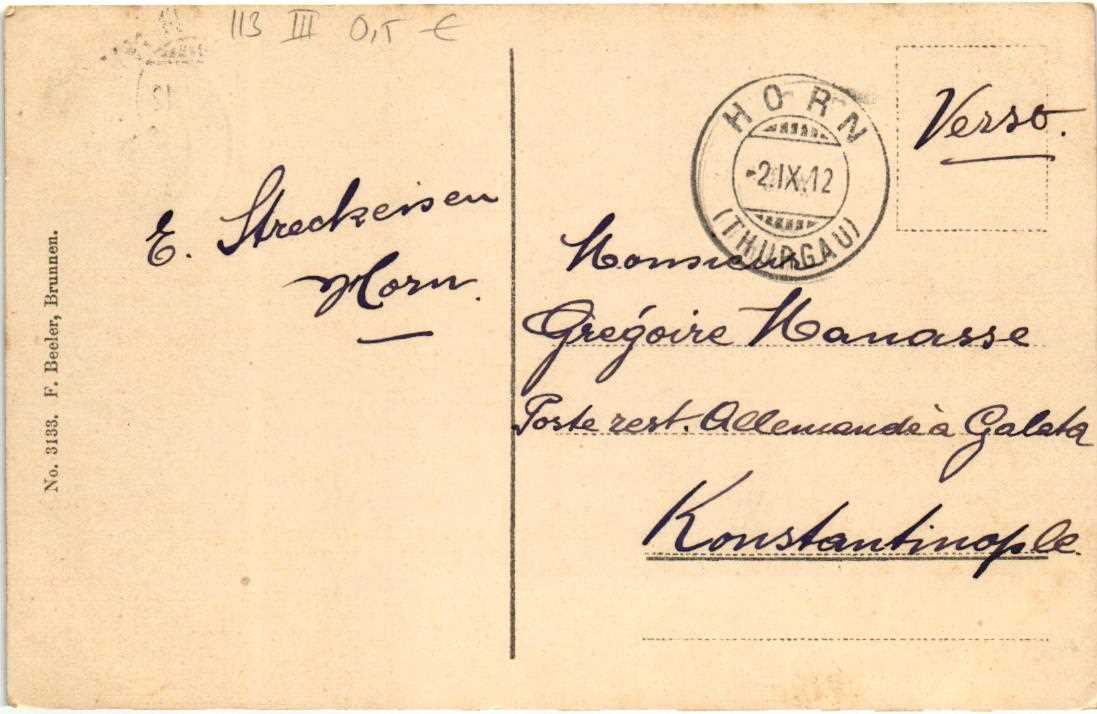 113 III 0,5 €
Verso.
HORN
-2.IX.12
(THURGAU)
E. Streckeisen
Horn.
Monsieur
Grégoire Manasse
Poste rest. Allemande à Galata
Konstantinople.
No. 3133. F. Beeler, Brunnen.